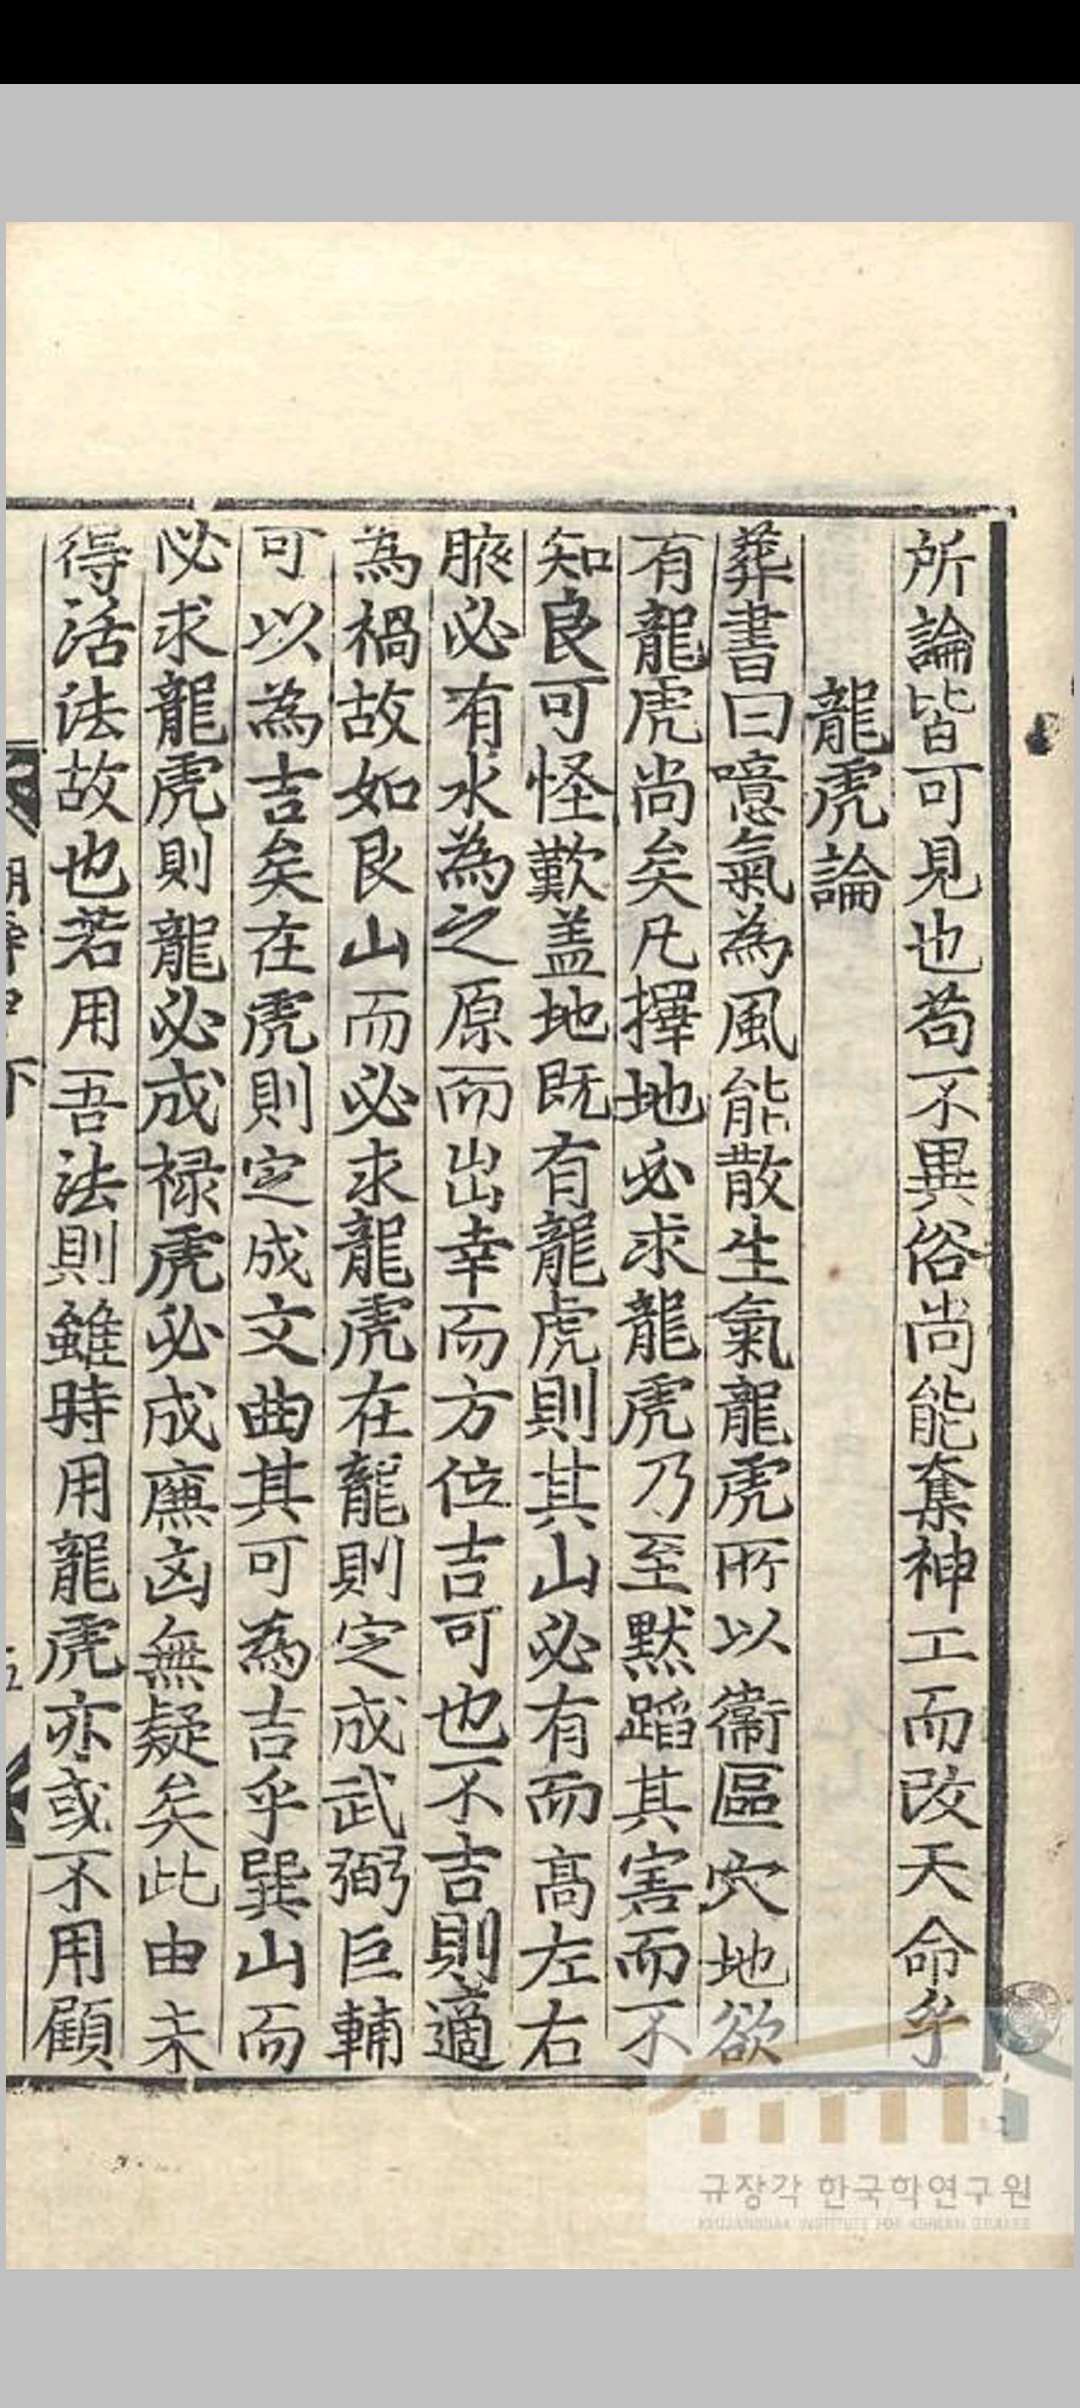 所論皆可見也苟不異俗尚能奪神工而改天命乎
龍虎論
葬書曰噫氣為風能散生氣龍虎所以衞區穴地欲
有龍虎尚矣凡擇地必求龍虎乃至默蹈其害而不
知良可怪歎盖地既有龍虎則其山必有而高左右
腋必有水為之原而出幸而方位吉可也不吉則適
為禍故如艮山而必求龍虎在龍則定成武弼巨輔
可以為吉矣在虎則定成文曲其可為吉乎巽山而
必求龍虎則龍必成禄虎必成廉凶無疑矣此由未
得活法故也若用吾法則雖時用龍虎亦或不用顧
규장각 한국학연구원
KYUJANGGAK INSTITUTE FOR KOREAN STUDIES